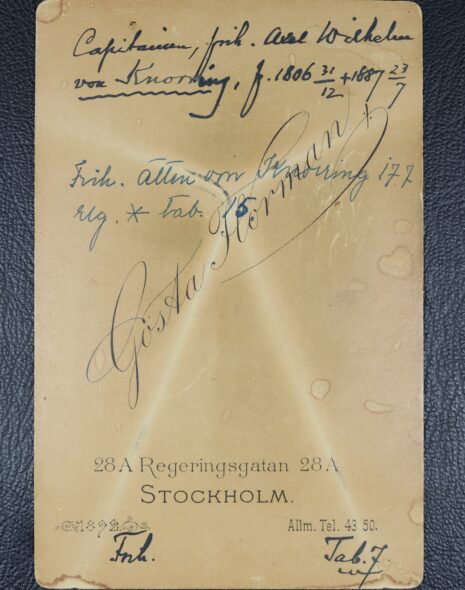 Capitainen, frih. Axel Wilhelm
von Knorring, f. 1806 31/12 + 1887 23/7
Frih. ätten von Knorring 177
elg. * tab. 15.
Gösta Florman
28A Regeringsgatan 28A
STOCKHOLM.
1892. Allm. Tel. 43 50.
Frh. Tab. 7